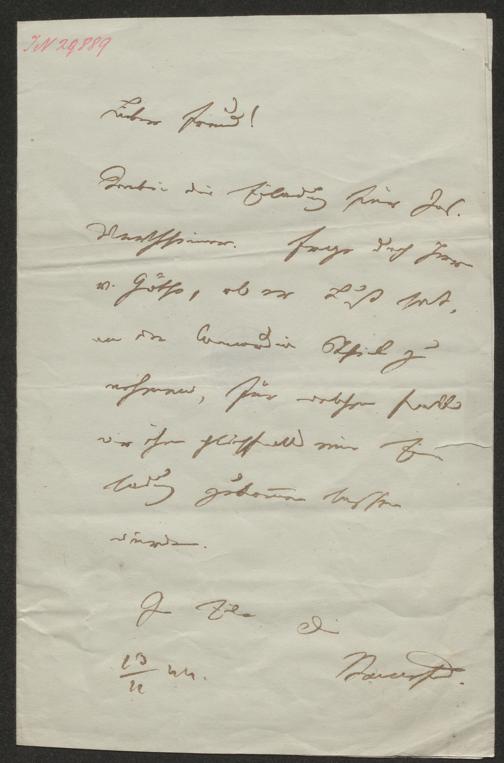 IN 29889
Lieber Freund!
die Einladung für Jos.
Wertheimer. Frage doch Herrn
v. Göthe, ob er Lust hat,
an der Concordia Theil zu
nehmen, für welchen Fall
wir ihm gleichfalls eine Ein
ladung zukommen lassen
würden.
In Eile
13
44.